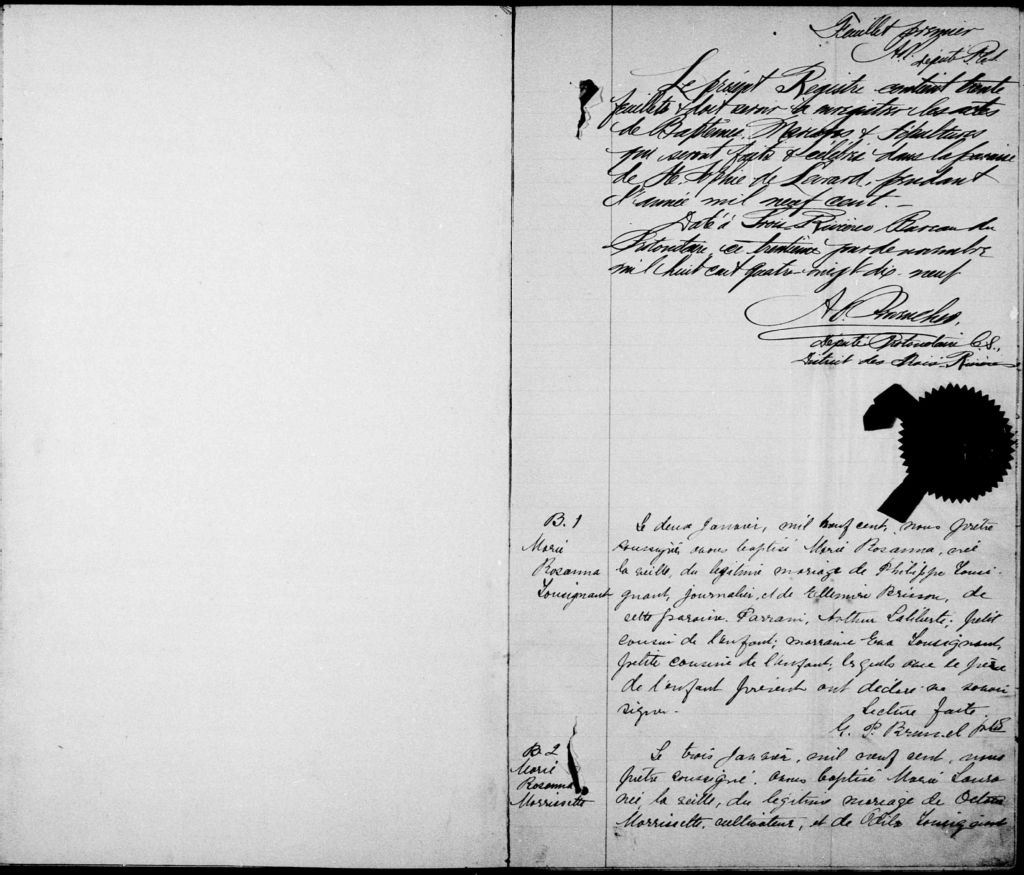 Feuillet premier
A.D. Député P.
Le présent Registre contient trente
feuillets & doit servir à enregistrer les actes
de Baptêmes, Mariages & Sépultures
qui seront faits & célébrés dans la paroisse
de Ste. Sophie de Lévrard, pendant
l'année mil neuf cent. —
Daté à Trois-Rivières Bureau du
Protonotaire ce trentième jour de novembre
mil huit cent quatre-vingt dix-neuf
Député Protonotaire C.S.,
District des Trois-Rivières
B. 1
Marie
Rosanna
Tousignant
Le deux Janvier, mil neuf cent, nous prêtre
soussigné, avons baptisé Marie Rosanna, née
la veille, du légitime mariage de Philippe Tousi-
gnant, journalier, et de Brisson, de
cette paroisse. Parrain, Arthur Laliberté, petit
cousin de l'enfant; marraine Eva Tousignant,
petite cousine de l'enfant, lesquels avec le père
de l'enfant présent ont déclaré ne savoir
signer. Lecture faite.
G. P. Brunel ptre
B. 2
Marie
Rosanna
Morrissette
Le trois Janvier, mil neuf cent, nous
prêtre soussigné, avons baptisé Marie Laura
née la veille, du légitime mariage de
Morrissette, cultivateur, et de Odila Tousignant